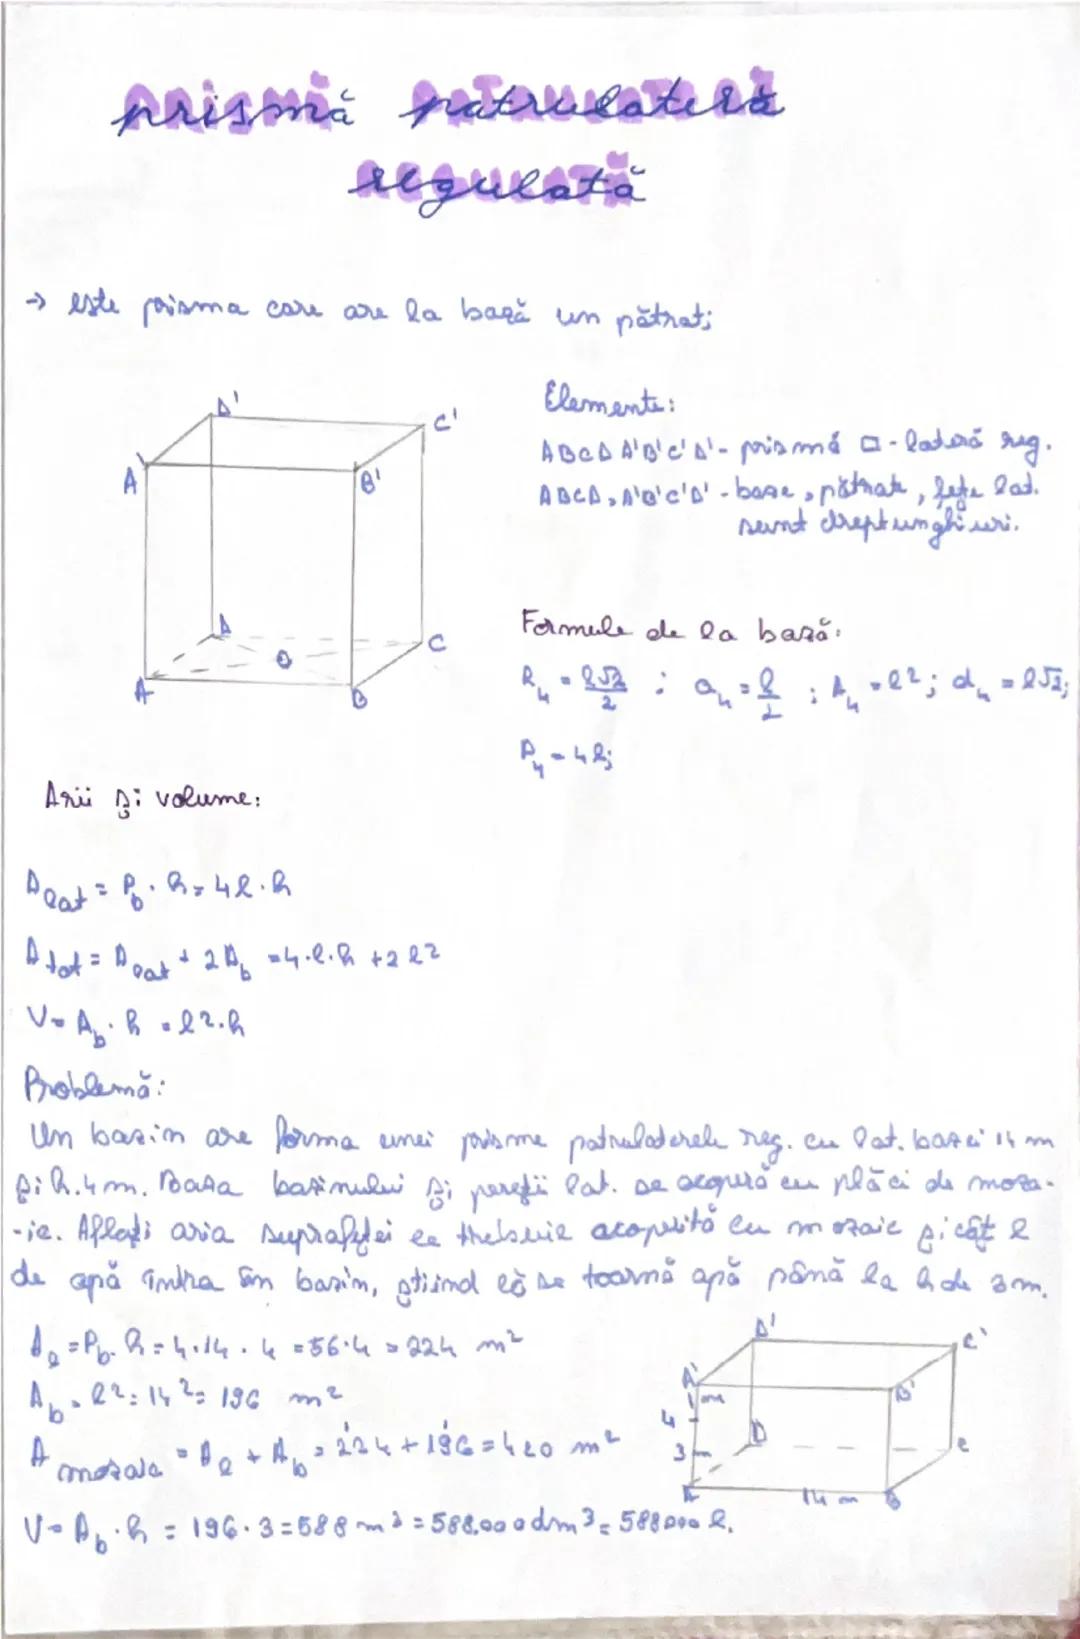 prismă patrulateră
regulată
→ este prisma care are la bază un pătrat;
Elemente:
ABCDA'B'C'D' - prismă □-lateră reg.
ABCD, A'B'C'D' - baze, pătrate, fețe lat.
sunt dreptunghiuri.
D'
C'
A'
B'
D
C
O
A
B
Formule de la bază:
R₄ = l√2/2 ; a₄ = l/2 ; A₄ = l² ; d₄ = l√2;
P₄ = 4l;
Arii și volume:
A lat = P_b · h = 4l · h
A tot = A lat + 2A_b = 4·l·h + 2l²
V = A_b · h = l²·h
Problemă:
Un bazin are forma unei prisme patrulatere reg. cu lat. bazei 14 m
și h. 4 m. Baza bazinului și pereții lat. se acoperă cu plăci de moza-
-ic. Aflați aria suprafeței ce trebuie acoperită cu mozaic și cât l
de apă intra în bazin, știind că se toarnă apă până la h de 3 m.
A_l = P_b · h = 4·14 · 4 = 56·4 = 224 m²
A_b = l² = 14² = 196 m²
A mozaic = A_l + A_b = 224 + 196 = 420 m²
V = A_b · h = 196 · 3 = 588 m³ = 588.000 dm³ = 588000 l.
D'
C'
A'
B'
1m
4
3m
D
C
A
14 m
B